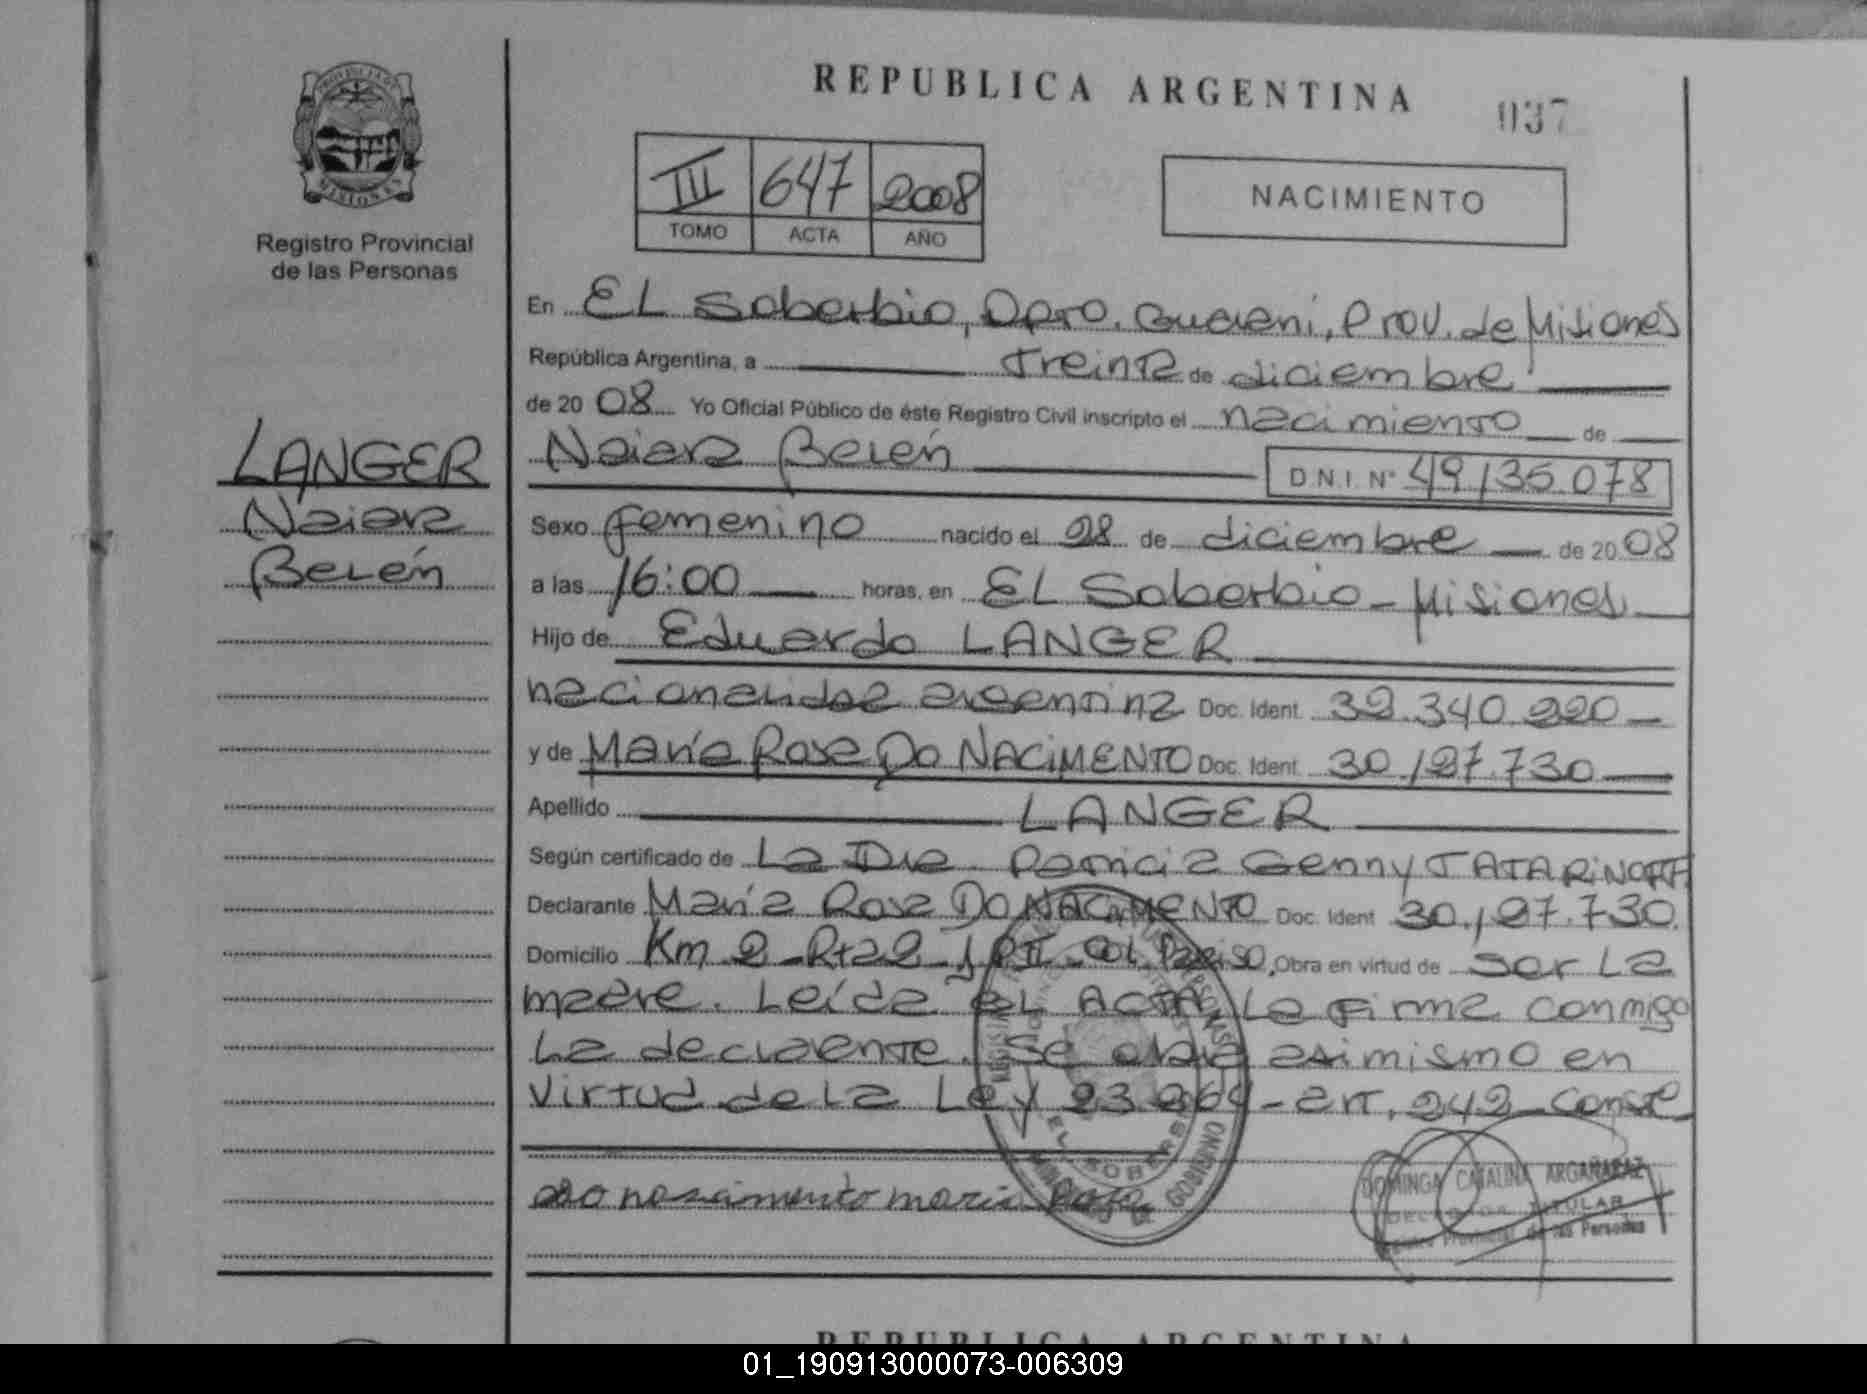 PROVINCIA DE
MISIONES
Registro Provincial
de las Personas
LANGER
Naiara
Belén
REPUBLICA ARGENTINA
037
III 647 2008
TOMO ACTA AÑO
NACIMIENTO
En EL Soberbio, Dpto. Guaraní, Prov. de Misiones
República Argentina, a treinta de diciembre
de 20 08 Yo Oficial Público de éste Registro Civil inscripto el nacimiento de
Naiara Belén D.N.I. Nº 49.135.078
Sexo femenino nacido el 28 de diciembre de 20 08
a las 16:00 horas, en EL Soberbio - Misiones
Hijo de Eduardo LANGER
nacionalidad argentina Doc. Ident. 32.340.220
y de María Rosa Do NACIMENTO Doc. Ident. 30.127.730
Apellido LANGER
Según certificado de La Dra. Patricia Genny TATARINOFF
Declarante María Rosa DO NACIMENTO Doc. Ident 30.127.730.
Domicilio Km 2 - Rta 2 - Col. Paraiso, Obra en virtud de ser La
madre. Leída el ACTA La firma conmigo
La declarante. Se obra asimismo en
virtud de la Ley 23.264 - art. 242 - Conste
do nascimento maria Rosa
EL SOBERBIO
GOBIERNO
DOMINGA CATALINA ARGAÑARAZ
TITULAR
Registro Provincial de las Personas
REPUBLICA ARGENTINA
01_190913000073-006309